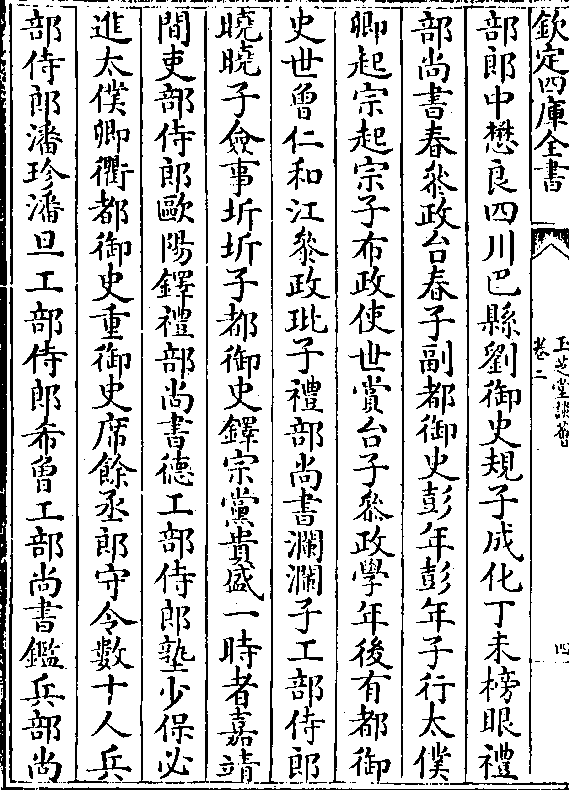 欽定四庫全書
玉芝堂談薈
卷二
四
部郎中懋良四川巴縣劉御史規子成化丁未榜眼禮
部尚書春叅政台春子副都御史彭年彭年子行太僕
卿起宗起宗子布政使世賞台子叅政學年後有都御
史世曾仁和江叅政玭子禮部尚書瀾瀾子工部侍郎
曉曉子僉事圻圻子都御史鐸宗黨貴盛一時者嘉靖
間吏部侍郎歐陽鐸禮部尚書德工部侍郎塾少保必
進太僕卿衢都御史重御史席餘丞郎守令數十人兵
部侍郎潘珍潘旦工部侍郎希曾工部尚書鑑兵部尚